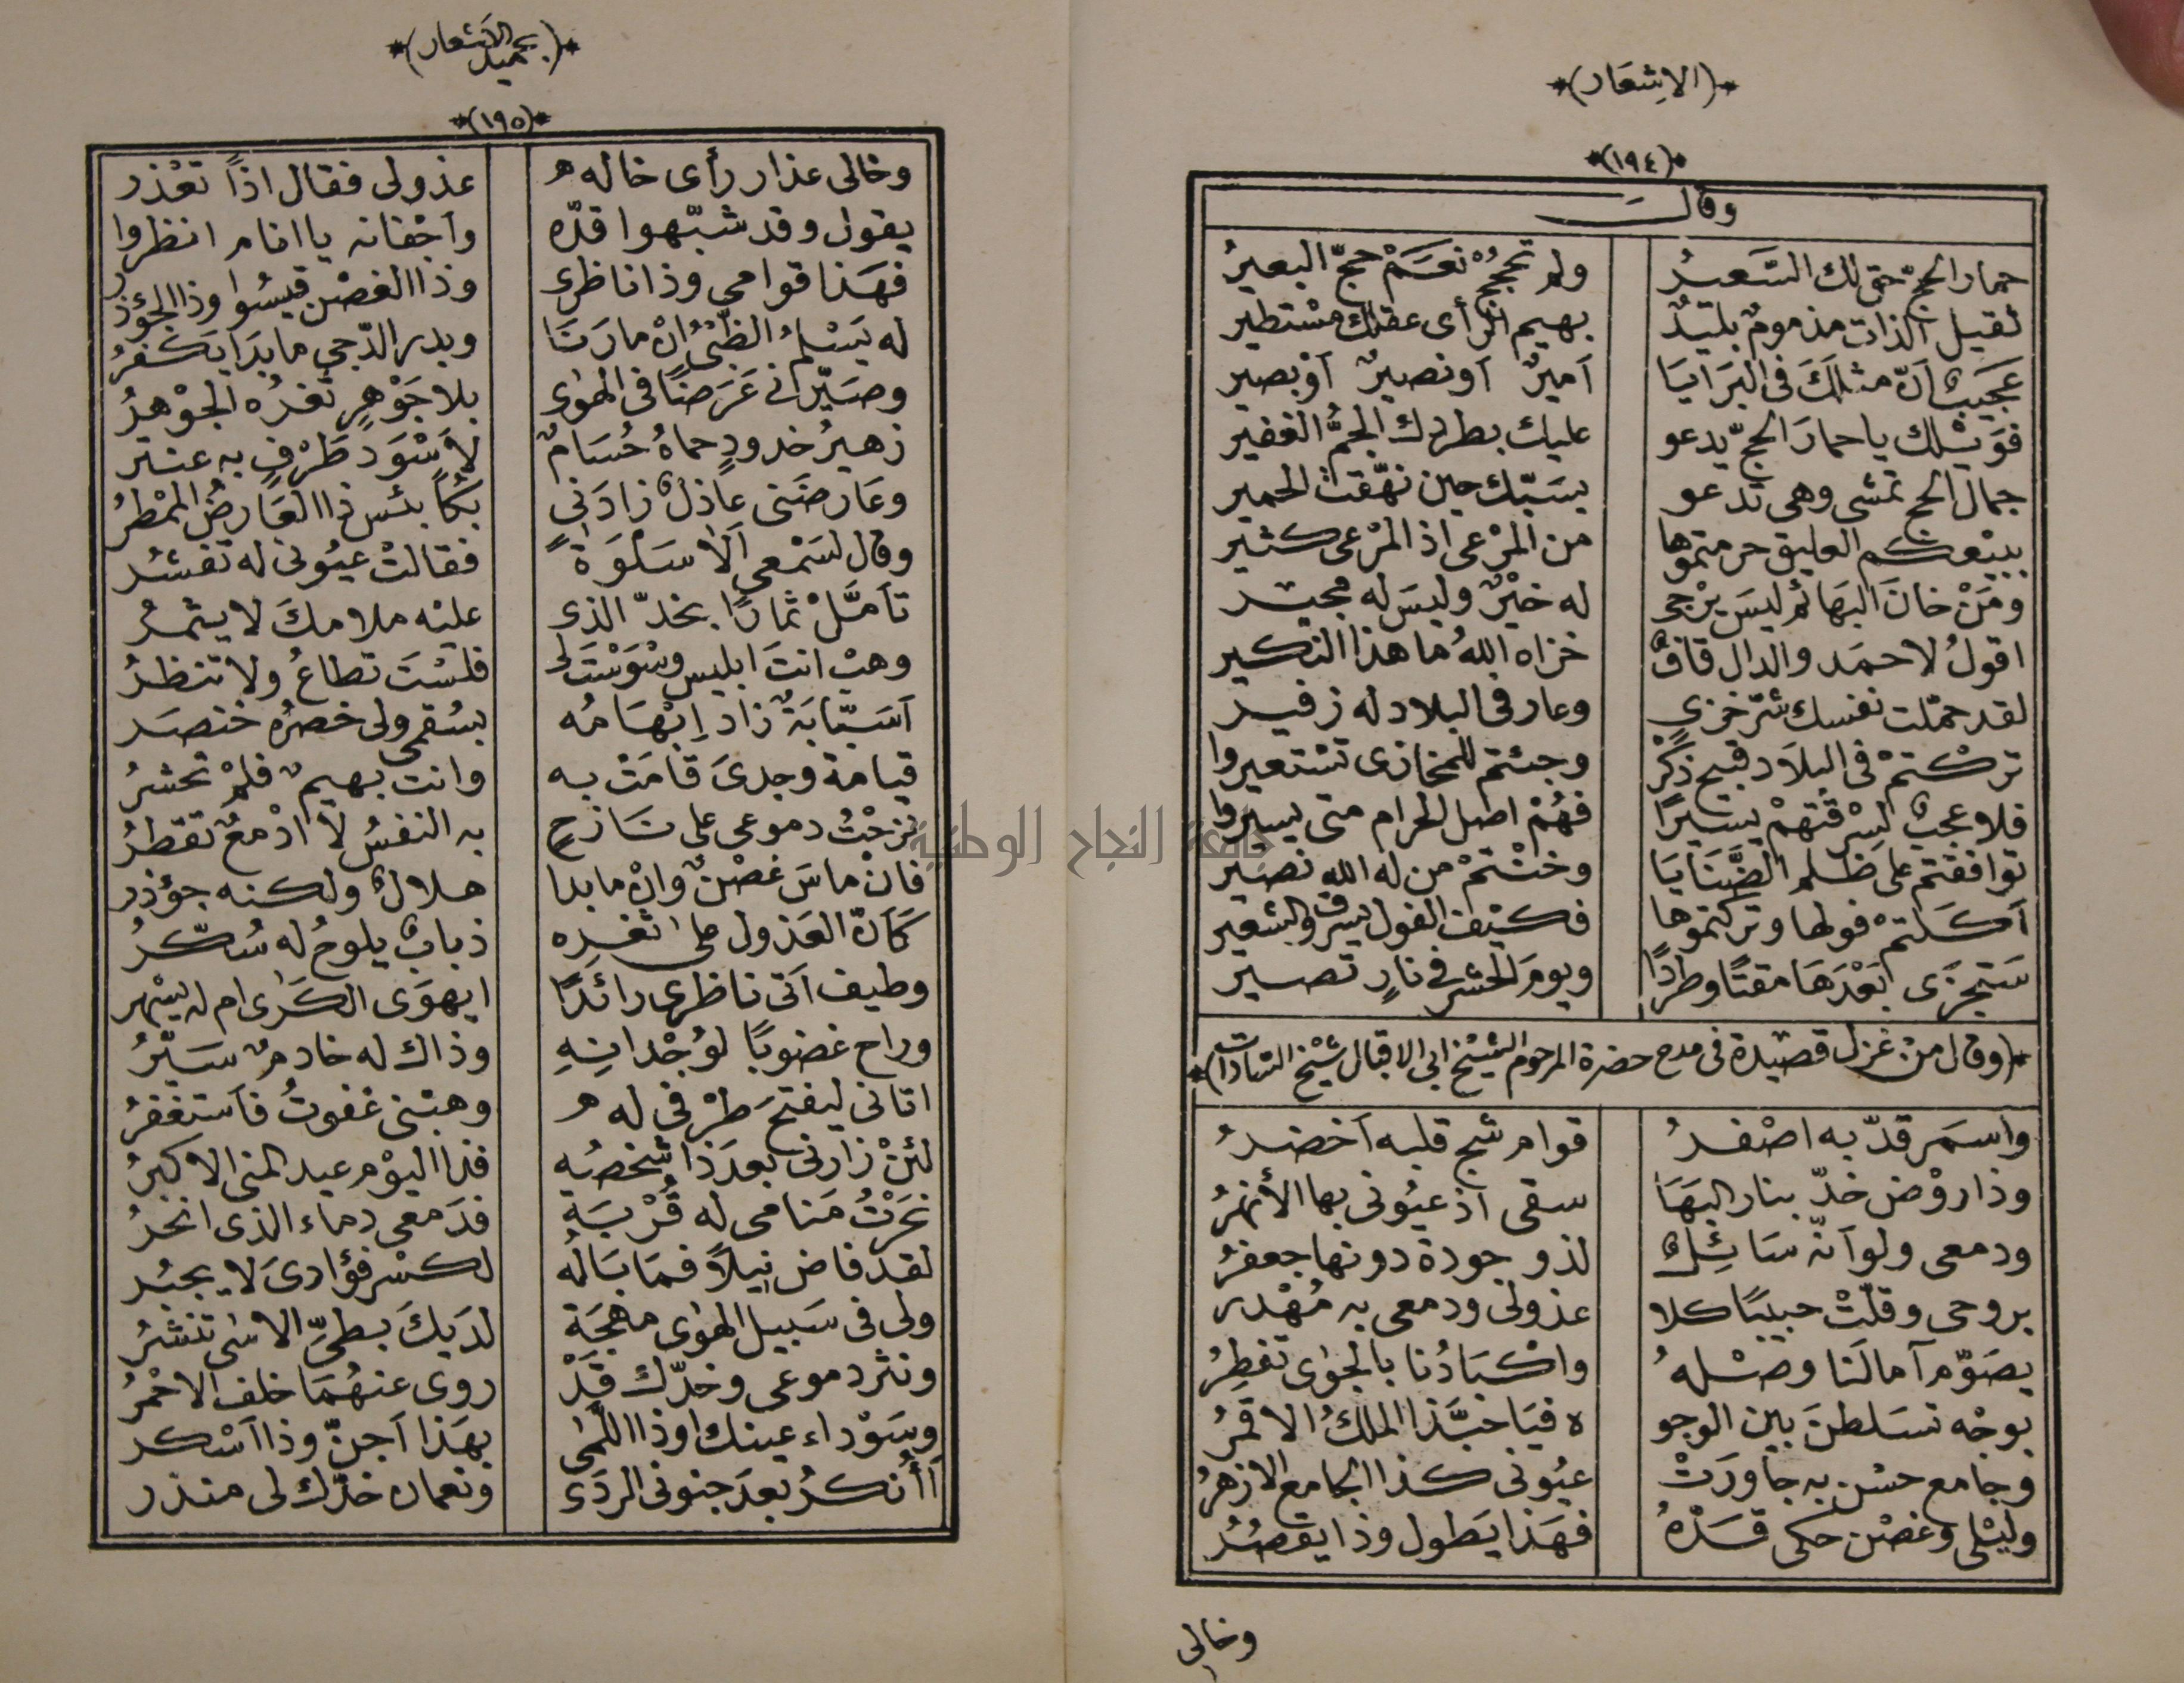 *(الاشعار)*
*(١٩٤)*
وقال
حمار الحج حق لك السعير ولم تحجج نعم حج البعير
ثقيل الذات مذموم بليد بهيم الرأى عقلك مستطير
عجيب ان مثلك فى البرايا أمير أو نصير أو بصير
فويلك يا حمار الحج يدعو عليك بطردك الجم الغفير
جمال الحج تمشى وهى تدعو بسبك حين نهقت الحمير
ببيعكم العليق حرمتموها من المرعى اذ المرعى كثير
ومن خان البهائم ليس يرجى له خير وليس له مجير
اقول لاحمد والدال قاف خزاه الله ما هذا النكير
لقد حملت نفسك شر خزي وعار فى البلاد له زفير
تركتم فى البلاد قبيح ذكر وجئتم للمخازى تستعيروا
فلا عجب لسرقتهم يسيرا فهم اصل الحرام متى يسيروا
توافقتم على ظلم الضنايا وخنتم من له الله نصير
أكلتم فولها وتركتموها فكيف الفول يسرق والشعير
ستجزى بعدها مقتا وطردا ويوم الحشر في نار تصير
*(وقال من غزل قصيدة فى مدح حضرة المرحوم الشيخ ابى الاقبال شيخ السادات)*
واسمر قد به اصفر قوام شج قلبه أخضر
وذا روض خد بنار البها سقى اذ عيونى بها الأنهر
ودمعى ولو أنه سائل لذو جودة دونها جعفر
بروحى وقلت حبيبا كلا عذولى ودمعى به مهدر
يصوم آمالنا وصله واكبادنا بالجوى تفطر
بوجه تسلطن بين الوجو ه فيا حبذا الملك الاقمر
وجامع حسن به جاورت عيونى كذا الجامع الازهر
وليلى وغصن حكى قده فهذا يطول وذا يقصر
وخالى
*(بحميد الاشعار)*
*(١٩٥)*
وخالى عذار رأى خاله عذولى فقال اذا تعذر
يقول وقد شبهوا قده وأجفانه يا انام انظروا
فهذا قوامي وذا ناظرى وذا الغصن قيسوا وذا الجؤذر
له يسلم الظبي ان ما رنا وبدر الدجي ما بدا يكفر
وصيرنى غرضا فى الهوى بلا جوهر ثغره الجوهر
زهير خدود حماه حسام لأسود طرف به عنتر
وعارضنى عاذل زادنى بكا بئس ذا العارض الممطر
وقال لسمعي ألا سلوة فقالت عيونى له تفشر
تأمل ثمارا بخد الذى عليه ملامك لا يثمر
وهب انت ابليس وسوست لى فلست تطاع ولا تنظر
أسبابة زاد إبهامه بسقمى ولى خصره خنصر
قيامة وجدى قامت به وانت بهيم فلم تحشر
نزحت دموعى على نازح به النفس لا ادمع تقطر
فان ماس غصن وان ما بدا هلال ولكنه جؤذر
كأن العذول على ثغره ذباب يلوح له سكر
وطيف أتى ناظرى رائدا ايهوى الكرى ام له يسهر
وراح غضوبا لوجدانه وذاك له خادم سير
اتانى ليفتح طرفى له وهبنى غفوت فأستغفر
لئن زارنى بعد ذا شخصه فذا اليوم عيد المنى الاكبر
نحرت منامى له قربة فدمعى دماء الذى انحر
لقد فاض نيلا فما باله لكسر فؤادى لا يجبر
ولى فى سبيل الهوى مهجة لديك بطي الاسى تنشر
ونثر دموعى وخدك قد روى عنهما خلف الاحمر
وسوداء عينك اوذا اللمى بهذا أجن وذا أسكر
أأنكر بعد جنونى الردى ونعمان خدك لى منذر
جامعة النجاح الوطنية